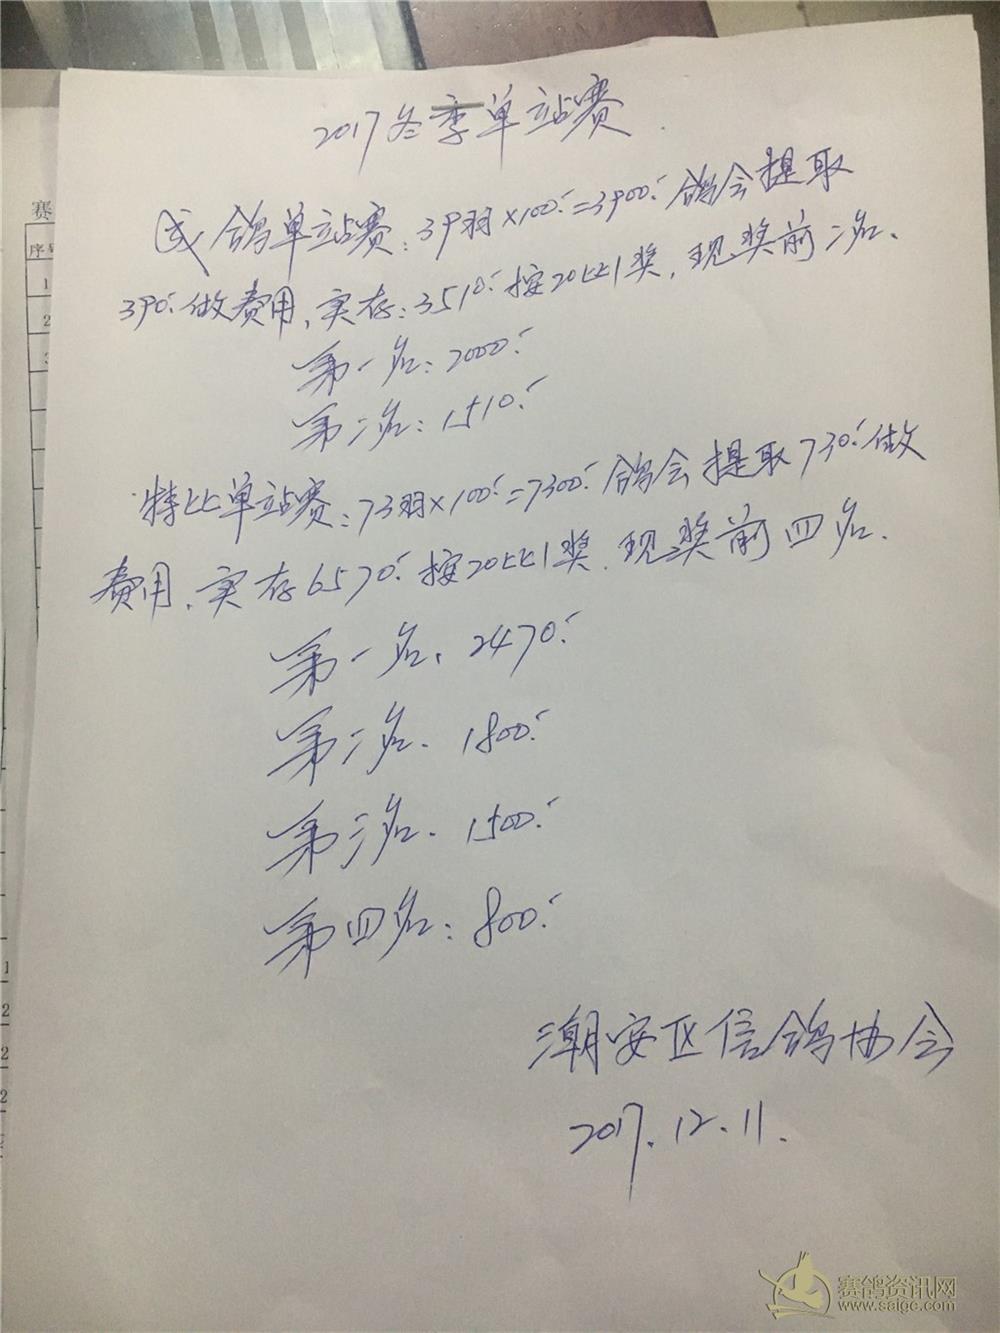 2017冬季单站赛
成鸽单站赛:39羽×100.=3900.鸽会提取
390.做费用,实存:3510.按20比1奖,现奖前二名.
第一名:2000.
第二名:1510.
特比单站赛:73羽×100.=7300.鸽会提取730.做
费用,实存6570.按20比1奖.现奖前四名.
第一名.2470.
第二名.1800.
第三名.1500.
第四名:800.
潮安区信鸽协会
2017.12.11.
赛
序号
1
2
3
1
2
2
2
赛鸽资讯网
www.saigc.com